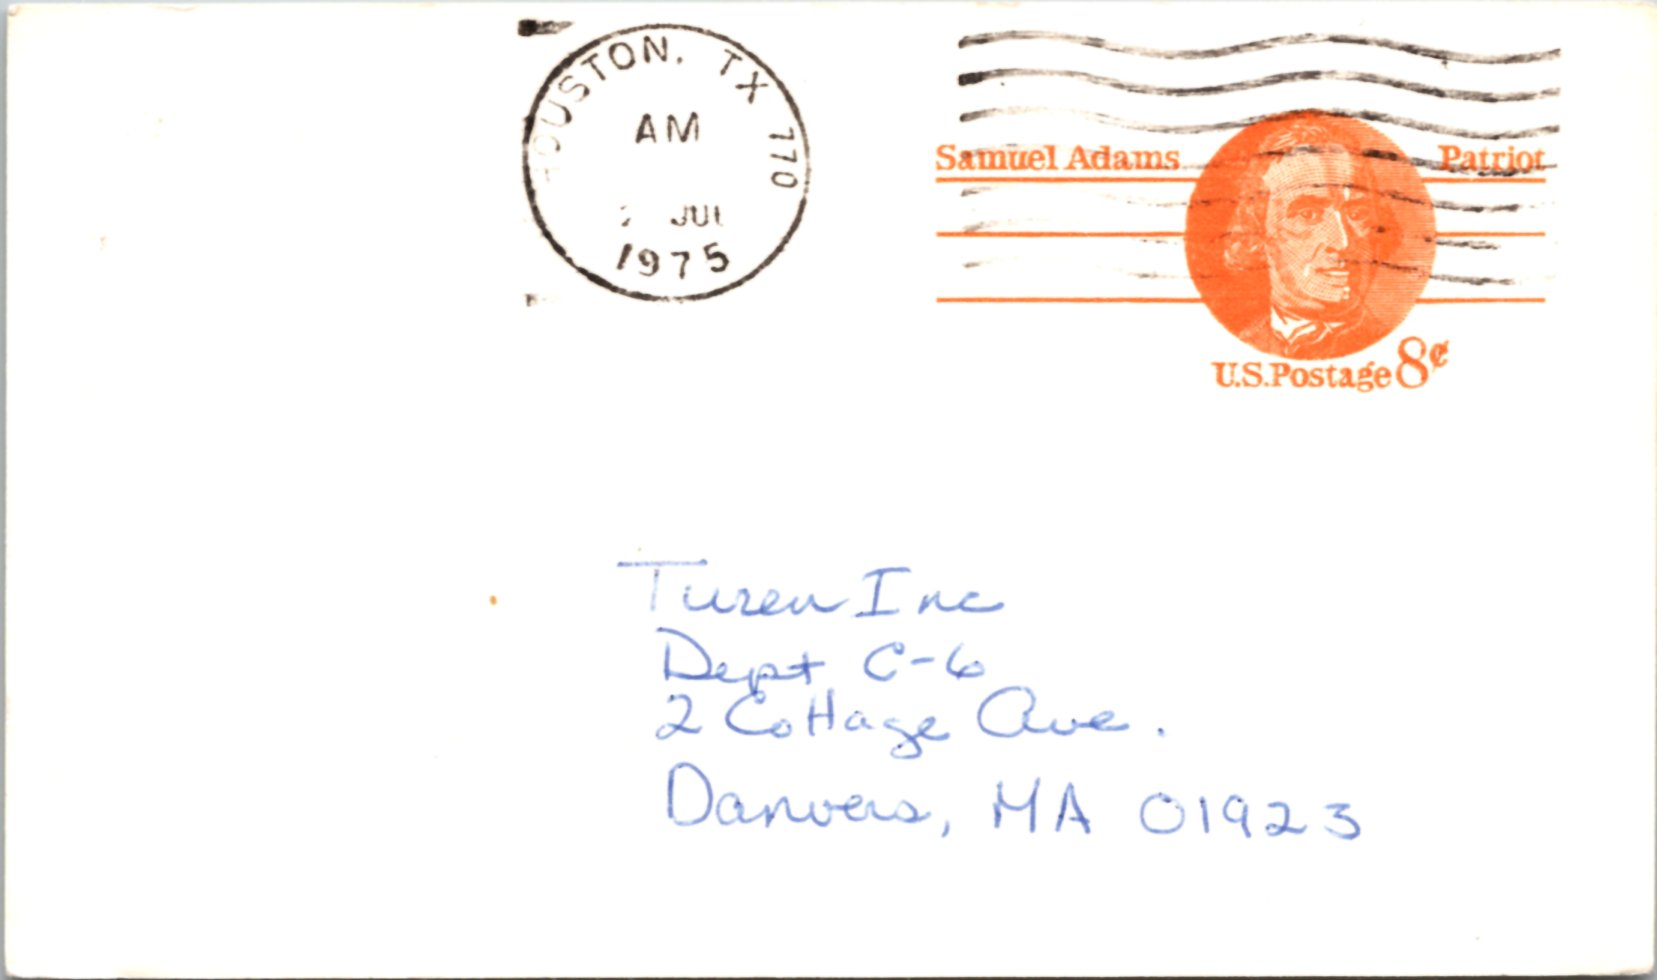 HOUSTON, TX 770
AM
JUL
1975
Samuel Adams Patriot
U.S. Postage 8¢
Turen Inc
Dept C-6
2 Cottage Ave.
Danvers, MA 01923